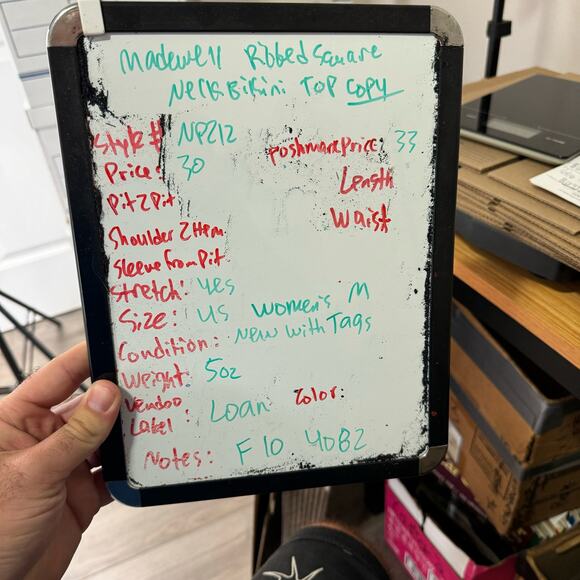 Madewell Ribbed Square
Neck Bikini Top Copy
Style # NP212 Poshmark Price: 33
Price: 30
Length
Pit 2 Pit
Waist
Shoulder 2 Hem
Sleeve From Pit
Stretch: yes
Size: US Women's M
Condition: New With Tags
Weight: 5oz
Vendoo Label: Loan Color:
Notes: F10 40B2